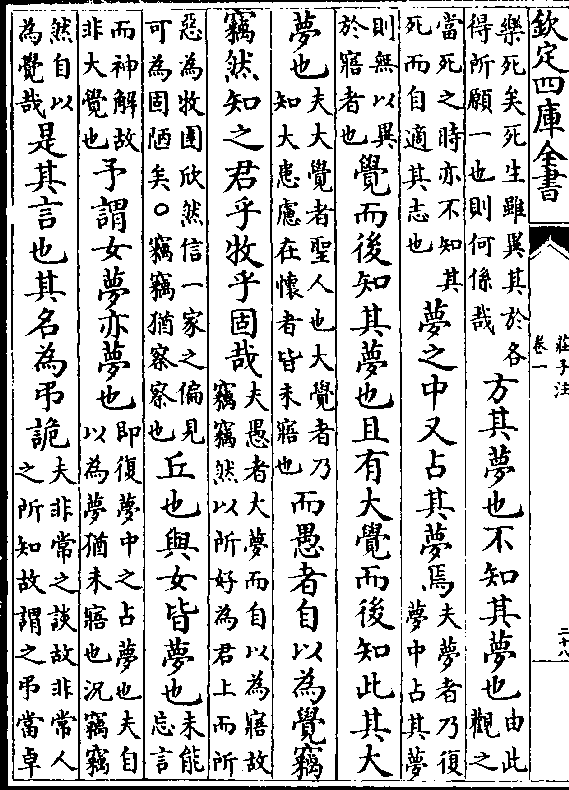 欽定四庫全書
莊子注
卷一
二十八
樂死矣死生雖異其於各
得所願一也則何係哉
方其夢也不知其夢也
由此
觀之
當死之時亦不知其
死而自適其志也
夢之中又占其夢焉
夫夢者乃復
夢中占其夢
則無以異
於寤者也
覺而後知其夢也且有大覺而後知此其大
夢也
夫大覺者聖人也大覺者乃
知大患慮在懷者皆未寤也
而愚者自以為覺竊
竊然知之君乎牧乎固哉
夫愚者大夢而自以為寤故
竊竊然以所好為君上而所
惡為牧圉欣然信一家之偏見
可為固陋矣○竊竊猶察察也
丘也與女皆夢也
未能
忘言
而神解故
非大覺也
予謂女夢亦夢也
即復夢中之占夢也夫自
以為夢猶未寤也況竊竊
然自以
為覺哉
是其言也其名為弔詭
夫非常之談故非常人
之所知故謂之弔當卓